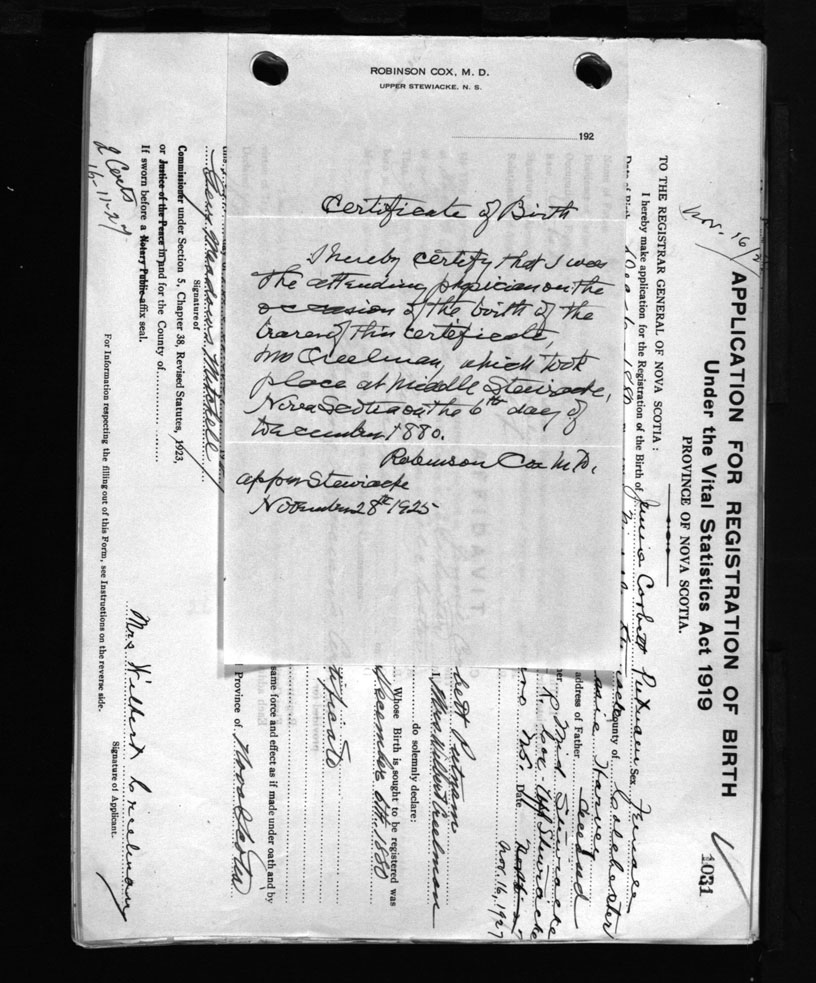 ROBINSON COX, M. D.
UPPER STEWIACKE, N. S.
192
Certificate of Birth
I hereby certify that I was
the attending physician on the
occasion of the birth of the
bearer of this certificate,
Mrs Creelman, which took
place at Middle Stewiacke,
Nova Scotia on the 6th day of
December 1880.
Robinson Cox M.D.
Upper Stewiacke
November 28th 1925
1031
APPLICATION FOR REGISTRATION OF BIRTH
Under the Vital Statistics Act 1919
PROVINCE OF NOVA SCOTIA.
Nov. 16/27
TO THE REGISTRAR GENERAL OF NOVA SCOTIA :
I hereby make application for the Registration of the Birth of Corbett Putnam Sex Female
County of Colchester
Harvey
address of Father Deceased
Mid. Stewiacke
Cox - Upp Stewiacke
N.S. Date
Nov. 16, 1927
bett Putnam
Mrs Wilbert Creelman
do solemnly declare:
Whose Birth is sought to be registered was
December 6th 1880
Certificate
same force and effect as if made under oath and by
Province of Nova Scotia
Signature of
Commissioner under Section 5, Chapter 38, Revised Statutes, 1923,
or Justice of the Peace in and for the County of
If sworn before a Notary Public affix seal.
2 Certs
16-11-27
Mrs Wilbert Creelman
Signature of Applicant.
For Information respecting the filling out of this Form, see Instructions on the reverse side.